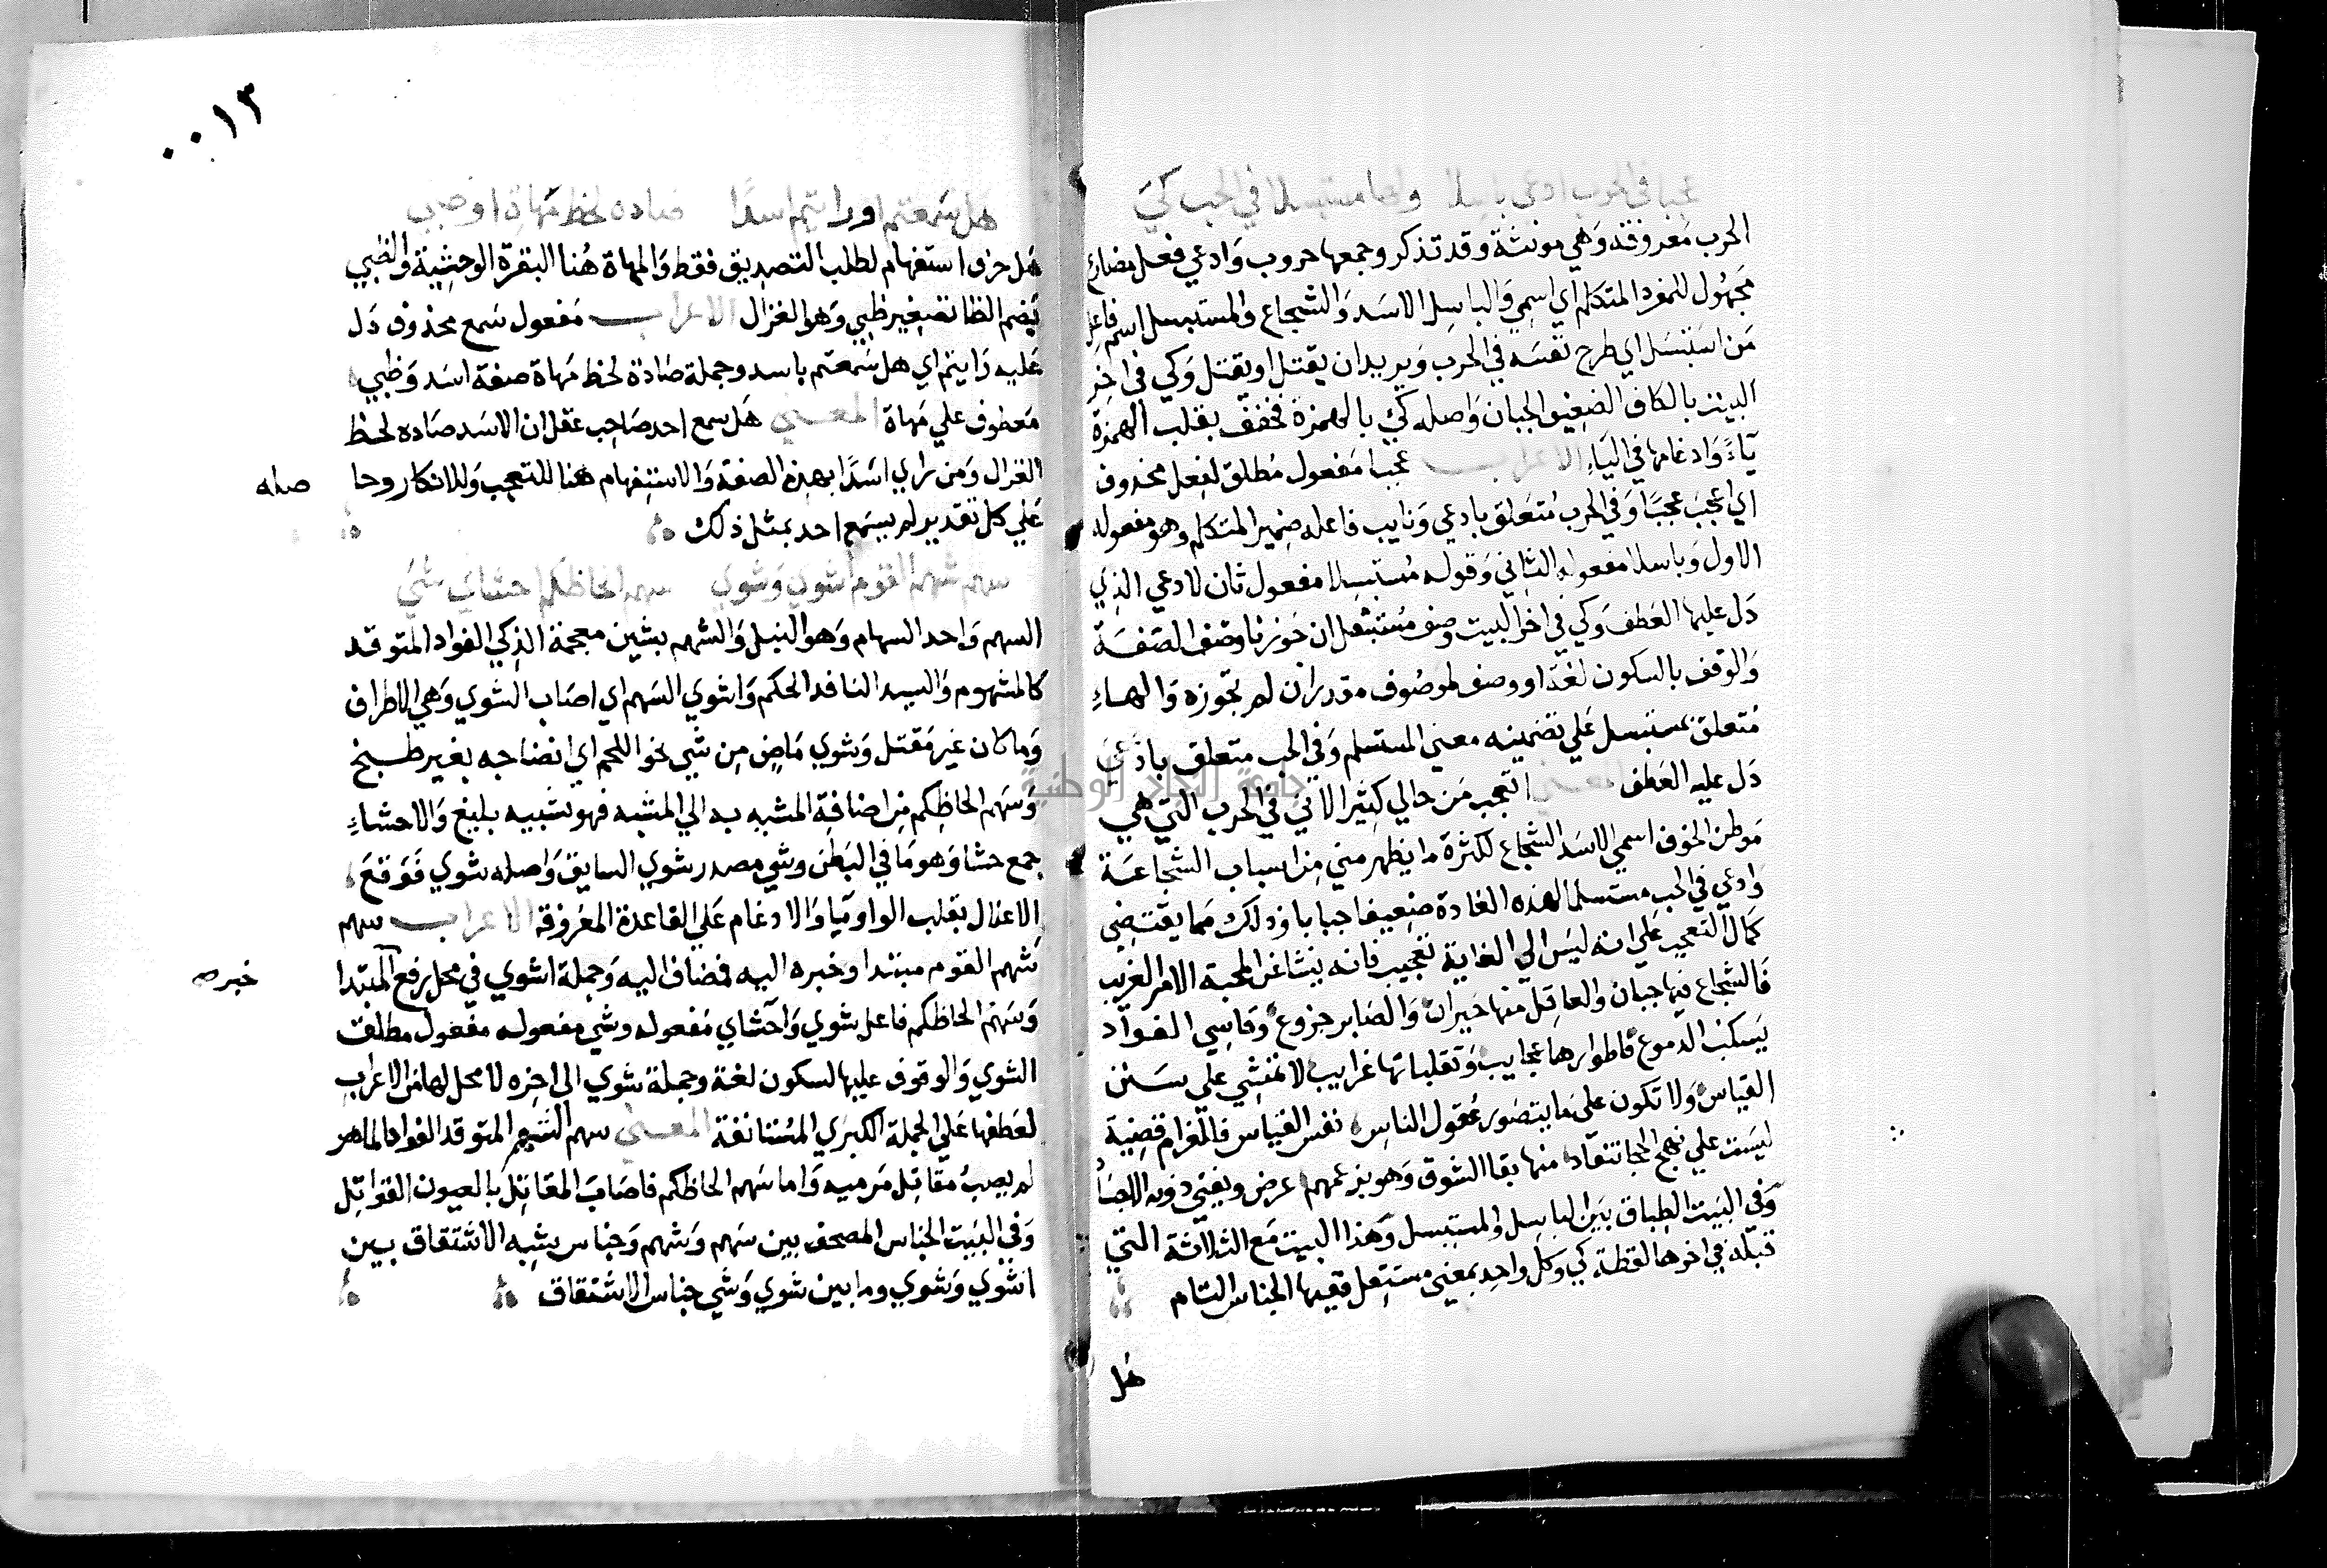 عجبا في الحرب ادعى باسلا ولها مستبسلا في الحب كي
الحرب معروفة وهي مونثة وقد تذكر وجمعها حروب وادعي فعل مضارع
مجهول للمفرد المتكلم اي اسمي والباسل الاسد والشجاع والمستبسل اسم فاعل
من استبسل اي طرح نفسه في الحرب ويريد ان يقتل او يقتل وكي في اخر
البيت بالكاف الضعيف الجبان واصله كيء بالهمزة فخفف بقلب الهمزة
ياء وادغامها في الياء الاعراب عجبا مفعول مطلق لفعل محذوف
اي اعجب عجبا وفي الحرب متعلق بادعي ونايب فاعله ضمير المتكلم وهو مفعوله
الاول وباسلا مفعوله الثاني وقوله مستبسلا مفعول ثان لادعي الذي
دل عليها العطف وكي في اخر البيت وصف مستبسل ان جوزنا وصف الصفة
والوقف بالسكون لغة او وصف لموصوف مقدر ان لم نجوزه والهاء
متعلق بمستبسل علي تضمينه معني المستسلم وفي الحب متعلق بادعي
دل عليه العطف المعني اتعجب من حالي كثيرا لاني في الحرب التي هي
موطن الخوف اسمي الاسد الشجاع لكثرة ما يظهر مني من اسباب الشجاعة
وادعي في الحب مستسلما لهذه الغادة ضعيفا جبانا وذلك مما يقتضي
كمال التعجب علي انه ليس الي الغاية تعجيب فانه ينشا عن المحبة الامر الغريب
فالشجاع فيها جبان والعاقل منها حيران والصابر جزوع وقاسي الفواد
يسكب الدموع فاطوارها عجايب وتقلباتها غرايب لا تمشي علي سنن
القياس ولا تكون علي ما يتصور عقول الناس نفس القياس فالغرام قضية
ليست علي نهج الحجا تنقاد منها بقا الشوق وهو بزعمهم عرض ويفني دونه الاجساد
وفي البيت الطباق بين الباسل والمستبسل وهذا البيت مع الثلاثة التي
قبله في اخرها لفظة كي وكل واحد بمعني مستقل ففيها الجناس التام
هل
٠٠١٣
هل سمعتم او رايتم اسدا صاده لحظ مهاة او ظبي
هل حرف استفهام لطلب التصديق فقط والمهاة هنا البقرة الوحشية والظبي
بضم الظا تصغير ظبي وهو الغزال الاعراب مفعول سمع محذوف دل
عليه رايتم اي هل سمعتم باسد وجملة صاده لحظ مهاة صفة اسد وظبي
معطوف علي مهاة المعني هل سمع احد صاحب عقل ان الاسد صاده لحظ
الغزال ومن راي اسدا بهذه الصفة والاستفهام هنا للتعجب وللانكار وحا
صله
علي كل تقدير لم يسمع احد بمثل ذلك
سهم شهم القوم اشوي وشوي سهم الحاظكم احشاي شي
السهم واحد السهام وهو النبل والشهم بشين معجمة الذكي الفواد المتوقد
كالمشهوم والسيد النافد الحكم واشوي السهم اي اصاب الشوي وهي الاطراف
وما كان غير مقتل وشوي ماض من شي نحو اللحم اي انضاجه بغير طبخ
وسهم الحاظكم من اضافة المشبه به الي المشبه فهو تشبيه بليغ والاحشاء
جمع حشا وهو ما في البطن وشي مصدر شوي السابق واصله شوي فوقع
الاعلال بقلب الواو يا والادغام علي القاعدة المعروفة الاعراب سهم
شهم القوم مبتدا وخبره اليه فمضاف اليه وجملة اشوي في محل رفع المبتدا
خبر
وسهم الحاظكم فاعل شوي واحشاي مفعوله وشي مفعوله مفعول مطلق
الشوي والوقوف عليها لسكون لغة وجملة شوي الي اخره لا محل لها من الاعراب
لعطفها علي الجملة الكبري المستانفة المعني سهم الشهم المتوقد الفواد الماهر
لم يصب مقاتل مرميه واما سهم الحاظكم فاصاب المقاتل بالعيون القواتل
وفي البيت الجناس المصحف بين سهم وشهم وجناس شبه الاشتقاق بين
اشوي وشوي وما بين شوي وشي جناس الاشتقاق
جامعة النجاح الوطنية